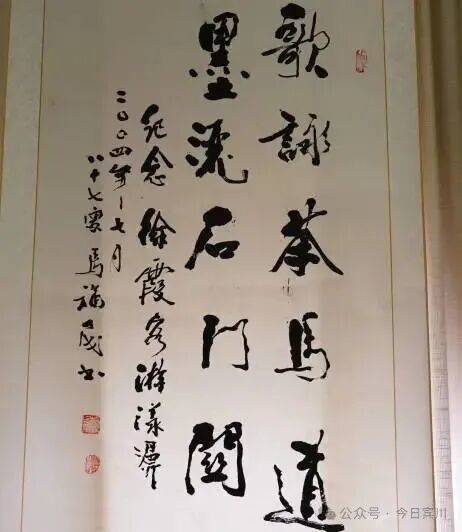 歌詠茶馬道
墨灑石门關
纪念徐霞客游漾濞
二〇〇四年七月
八十七叟馬福书
公众号 · 今日宾川